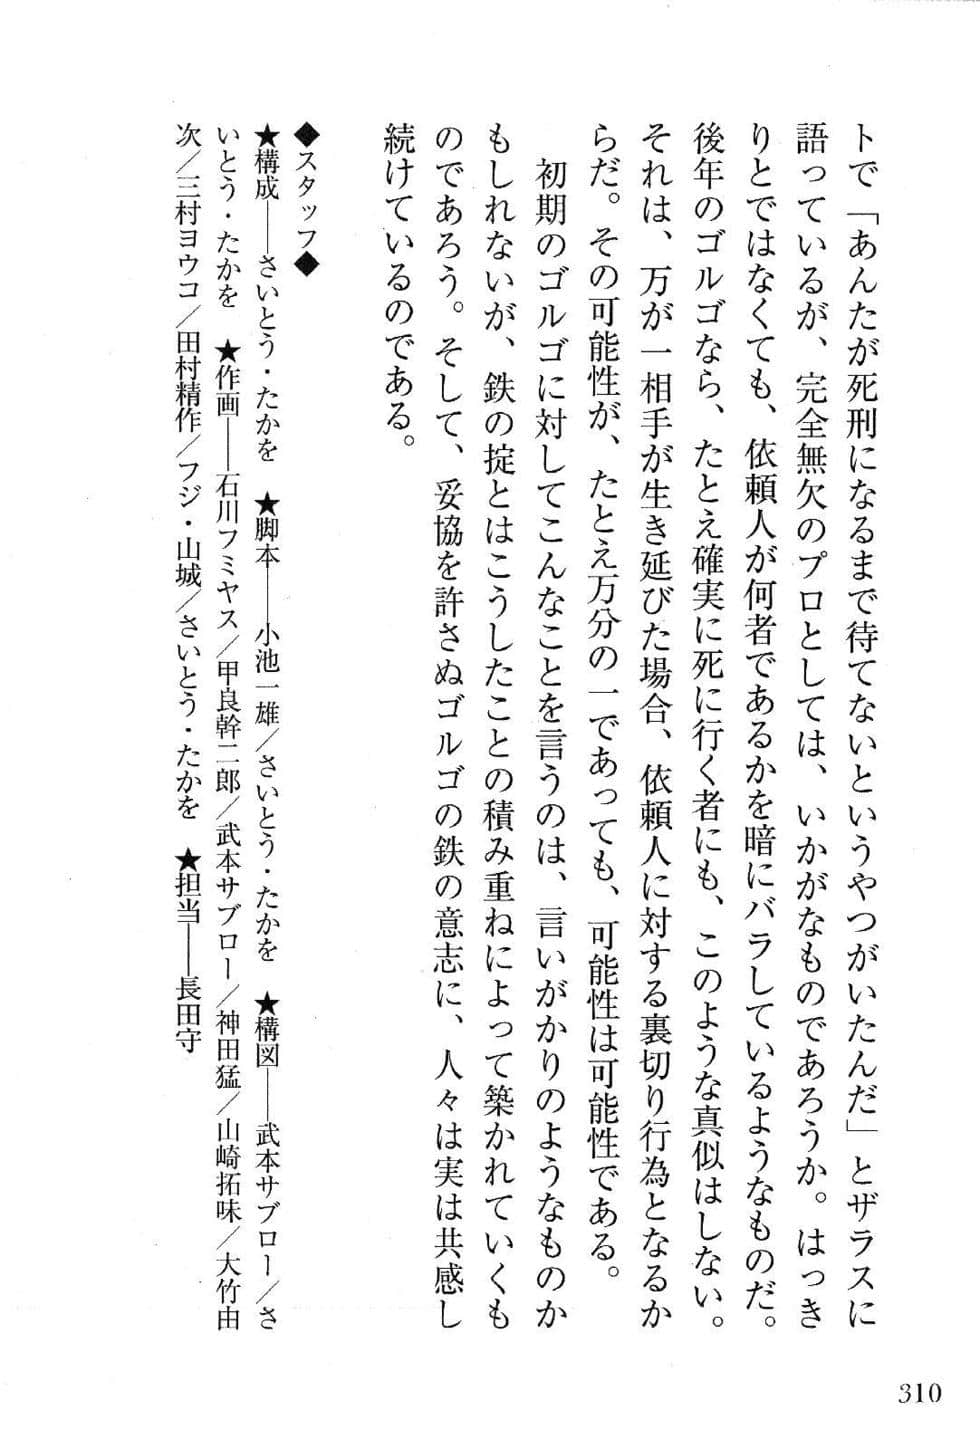 トで「あんたが死刑になるまで待てないというやつがいたんだ」とザラスに
語っているが、完全無欠のプロとしては、いかがなものであろうか。はっき
りとではなくても、依頼人が何者であるかを暗にバラしているようなものだ。
後年のゴルゴなら、たとえ確実に死に行く者にも、このような真似はしない。
それは、万が一相手が生き延びた場合、依頼人に対する裏切り行為となるか
らだ。その可能性が、たとえ万分の一であっても、可能性は可能性である。
初期のゴルゴに対してこんなことを言うのは、言いがかりのようなものか
もしれないが、鉄の掟とはこうしたことの積み重ねによって築かれていくも
のであろう。そして、妥協を許さぬゴルゴの鉄の意志に、人々は実は共感し
続けているのである。
◆スタッフ◆
★構成——さいとう・たかを　★脚本——小池一雄／さいとう・たかを　★構図——武本サブロー／さ
いとう・たかを　★作画——石川フミヤス／甲良幹二郎／武本サブロー／神田猛／山崎拓味／大竹由
次／三村ヨウコ／田村精作／フジ・山城／さいとう・たかを　★担当——長田守
310